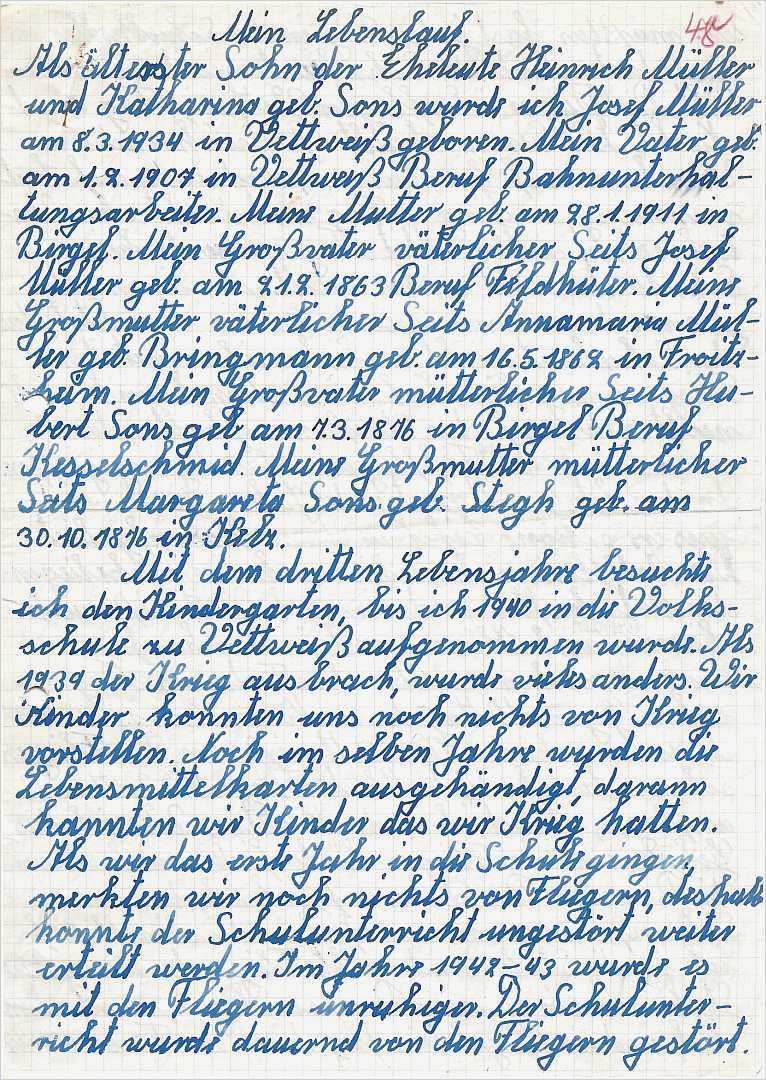 Mein Lebenslauf. 48
Als ältester Sohn der Eheleute Heinrich Müller
und Katharina geb. Sons wurde ich Josef Müller
am 8.3.1934 in Vettweiß geboren. Mein Vater geb.
am 1.2.1907 in Vettweiß Beruf Bahnunterhal-
tungsarbeiter. Meine Mutter geb. am 28.1.1911 in
Birgel. Mein Großvater väterlicher Seits Josef
Müller geb. am 21.2.1863 Beruf Feldhüter. Meine
Großmutter väterlicher Seits Annamaria Mül-
ler geb. Bringmann geb. am 16.5.1862 in Froitz-
heim. Mein Großvater mütterlicher Seits Hu-
bert Sons geb am 7.3.1876 in Birgel Beruf
Kesselschmid. Meine Großmutter mütterlicher
Seits Margareta Sons geb. Stegh geb. am
30.10.1876 in Kelz.
Mit dem dritten Lebensjahre besuchte
ich den Kindergarten, bis ich 1940 in die Volks-
schule zu Vettweiß aufgenommen wurde. Als
1939 der Krieg ausbrach, wurde vieles anders. Wir
Kinder konnten uns noch nichts von Krieg
vorstellen. Noch im selben Jahre wurden die
Lebensmittelkarten ausgehändigt, darann
kannten wir Kinder das wir Krieg hatten.
Als wir das erste Jahr in die Schule gingen,
merkten wir noch nichts von Fliegern, deshalb
konnte der Schulunterricht ungestört weiter
erteilt werden. Im Jahre 1942-43 wurde es
mit den Fliegern unruhiger. Der Schulunter-
richt wurde dauernd von den Fliegern gestört.